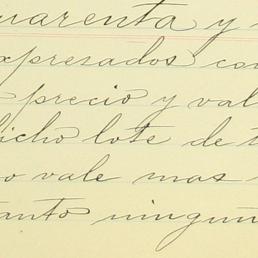 uarenta y
xpresados con
precio y val
icho lote de t
o vale mas
tanto ningun